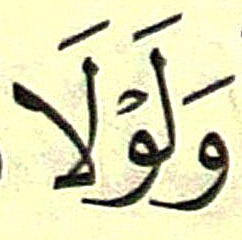 وَلَوْلَا